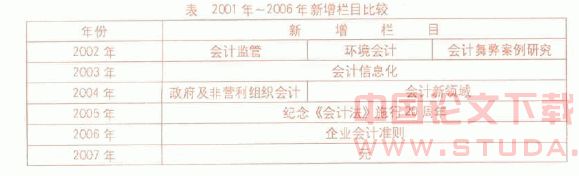 表 2001年~2006年新增栏目比较
年份 新增栏目
2002年 会计监管 环境会计 会计舞弊案例研究
2003年 会计信息化
2004年 政府及非营利组织会计 会计新领域
2005年 纪念《会计法》施行20周年
2006年 企业会计准则
2007年 无
中国论文下载
WWW.STUDA.